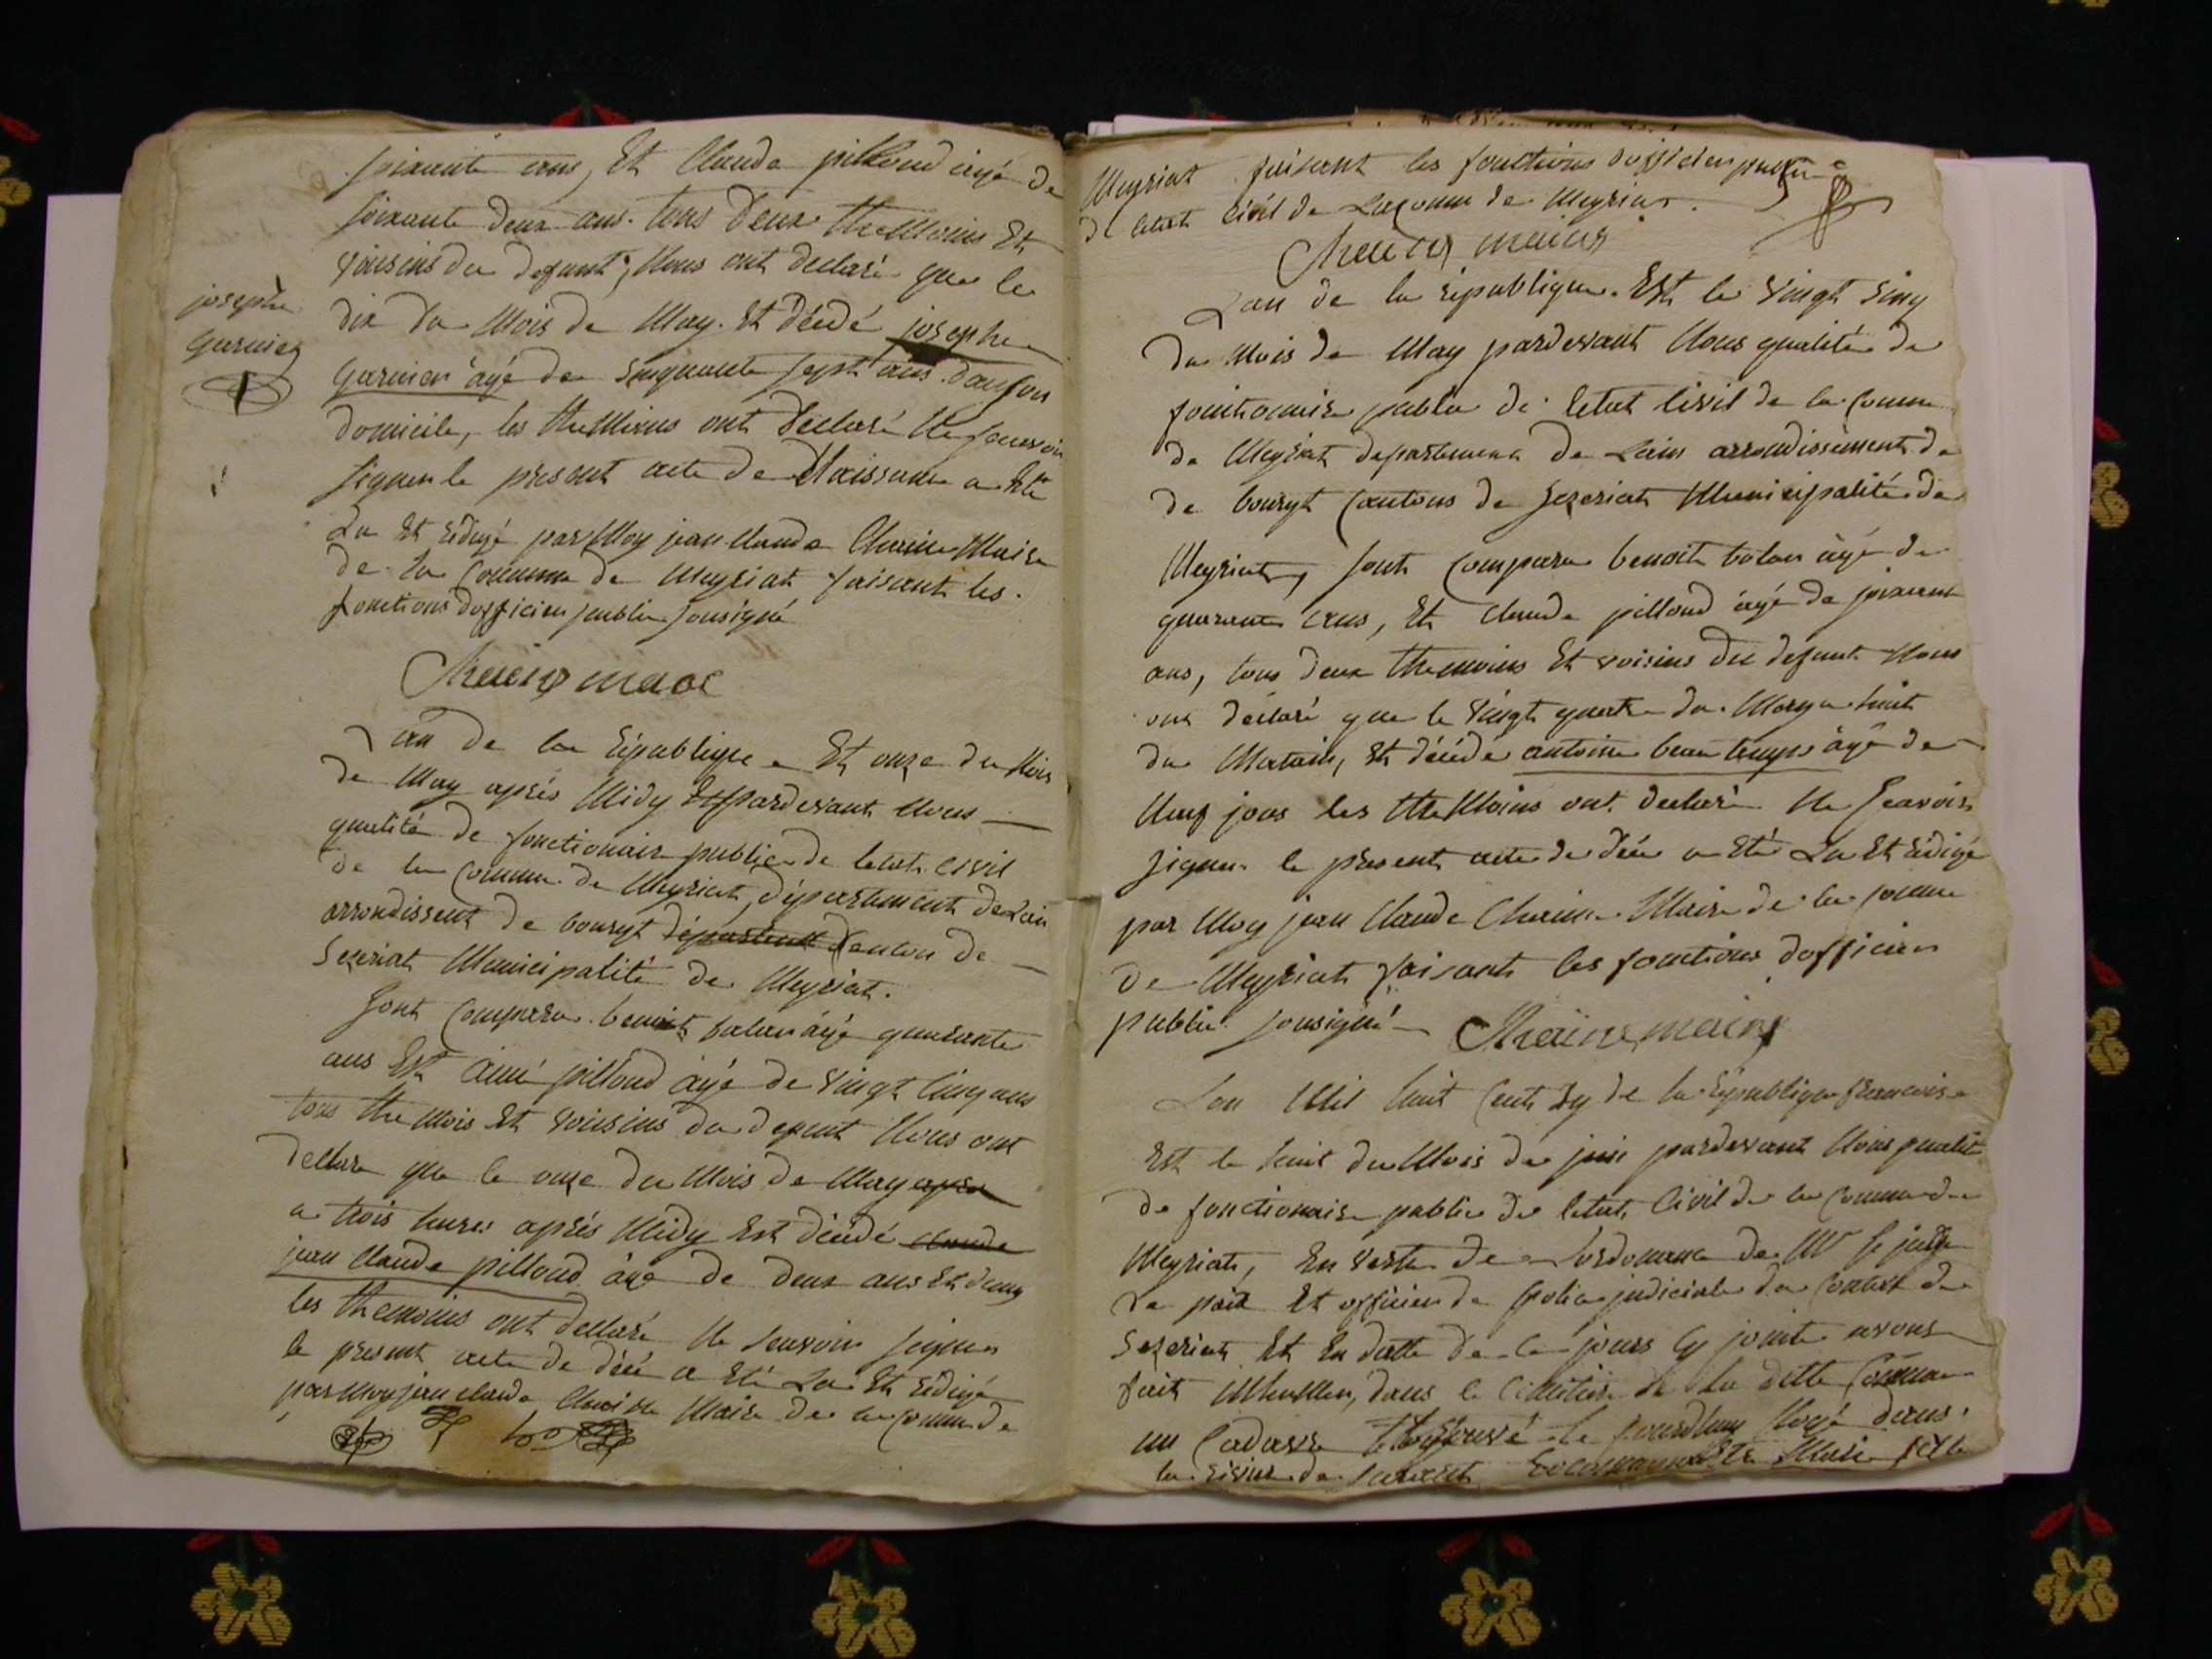 soixante ans, Et Claude pilloud âgé de
soixante deux ans. tous deux themoins Et
voisins du defunt, Nous ont declaré que le
dix du Mois de May. Et décédé josephe
josephe
garnier
garnier âgé de sinquante sept ans. dan son
domicile, les themoins ont declaré Ne scavoir
signer le present acte de Naissance a Eté
Lu Et rédigé par Moy jean Claude Maire
de la Commune de Meyriat faisant les
fonctions dofficier public sousigné
maire
Lan de la république Et onze du Mois
de May après Midy pardevant Nous
qualité de fonctionaire public de letat civil
de la Commune de Meyriat, département de Lain
arrondissent de bourgt canton de
Sezeriat Municipalité de Meyriat.
sont Comparu benoit balan âgé quarante
ans Et aimé pilloud âgé de vingt Cinq ans
tous themois Et voisins du defunt Nous ont
declare que le onze du Mois de May
a trois heures après Midy Est décédé
jean Claude pilloud âge de deux ans Et demy
les themoins ont declaré Ne scavoir signer
le present acte de décé a Eté Lu Et rédigé
par Moy jean claude Maire de la Commune de
Meyriat faisant les fonctions dofficier public
de letat Civil de La Comm de Meyriat.
maire
Lan de la république. Est le vingt sinq
du Mois de May pardevant Nous qualité de
fonctionnaire public de letat Civil de la Comm
de Meyriat departement de Lain arrondissement de
de bourgt Cantons de Sezeriat Municipalité de
Meyriat, sont Comparu benoit balan âgé de
quarante ans, Et Claude pilloud âgé de soixante
ans, tous deux themoins Et voisins du defunt Nous
ont déclaré que le vingt quatre du May a huit
du Matain, Et décédé antoine beau temps âgé de
Neuf jours les themoins ont declaré Ne scavoir
signer le present acte de décé a Eté Lu Et rédigé
par Moy jean Claude Maire de la Commune
de Meyriat faisants les fonctions dofficier
public sousigné
Lan Mil huit Cent de la République francoise
Est le huit du Mois de juin pardevant Nous qualité
de fonctionaire public de letat Civil de la Commune de
Meyriat, En vertu de Lordonnance de Mr le juge
de paix Et officier de police judiciaire du Canton de
Sezeriat Et En datte de ce jours Cy jointe avons
fait inhumer, dans le Cimitiere de La ditte Commune
un Cadavre trouvé Noyé dans
la riviere de